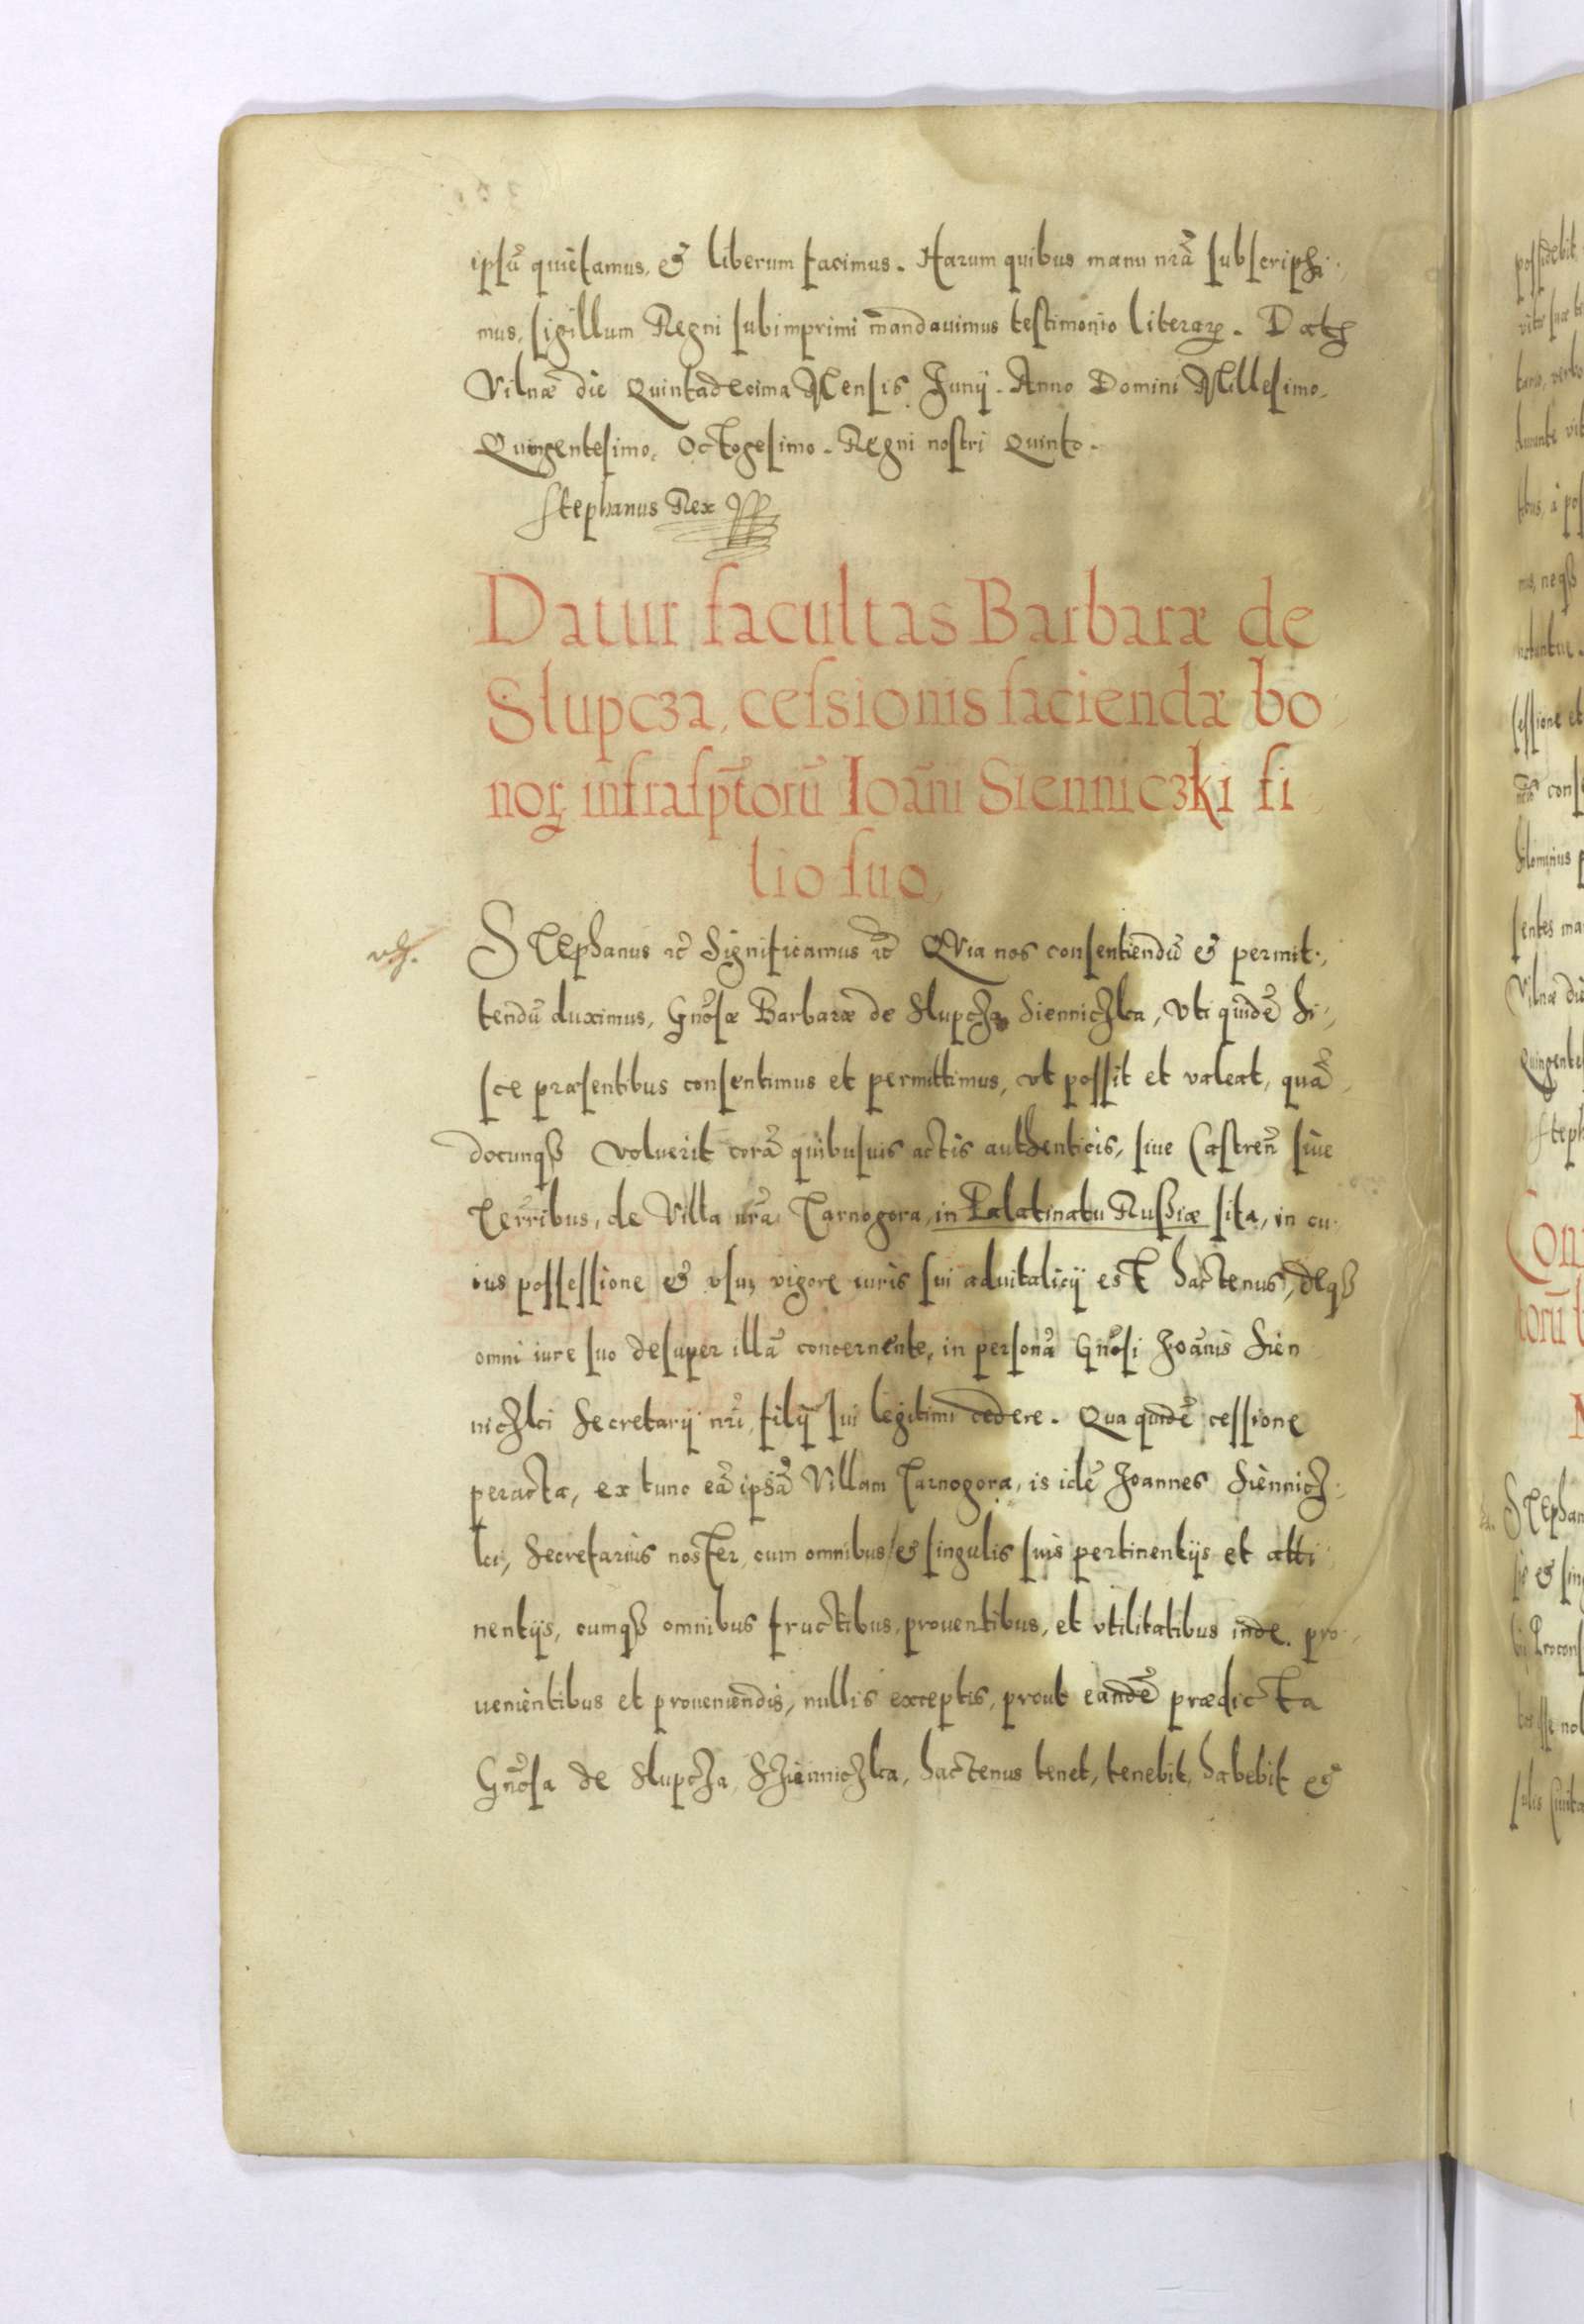 ipsũ quietamus, & liberum facimus. Harum quibus manu nrã subscripsi-
mus, sigillum Regni subimprimi mandauimus testimonio literarꝝ. Datꝭ
Vilnæ die Quintadecima Mensis Junij. Anno Domini Millesimo.
Quingentesimo, Octogesimo. Regni nostri Quinto.
Stephanus Rex
Datur facultas Barbaræ de
Slupcza, cessionis faciendæ bo
noꝝ infrascp̃torũ Ioãni Sienniczki fi
lio suo,
Stephanus ꝛc̃ Significamus ꝛc̃ QVia nos consentiendũ & permit-
tendũ duximus, Gñosæ Barbaræ de Slupcza Sienniczka, Vti quidẽ hi-
sce præsentibus consentimus et permittimus, vt possit et valeat, quã
docunqꝫ voluerit corã quibusuis actis authenticis, siue Castreñ siue
Terr̃ibus, de Villa nr̃a Tarnogora, in Palatinatu Russiæ sita, in cu-
ius possessione & vsu, vigore iuris sui aduitalicij est hactenus, deqꝫ
omni iure suo desuper illã concernente, in personã Gñosi Joãnis Sien
niczki Secretarij nr̃i, filij sui legitimi cedere. Qua quidẽ cessione
peracta, ex tunc eã ipsã Villam Tarnogora, is idẽ Joannes Siennicz-
ki, Secretarius noster, cum omnibus & singulis suis pertinentijs et atti
nentijs, cumqꝫ omnibus fructibus, prouentibus, et vtilitatibus inde pro-
uenientibus et proueniendis, nullis exceptis, prout eandẽ prædicta
Gñosa de Slupcza Sienniczka, hactenus tenet, tenebit, habebit &